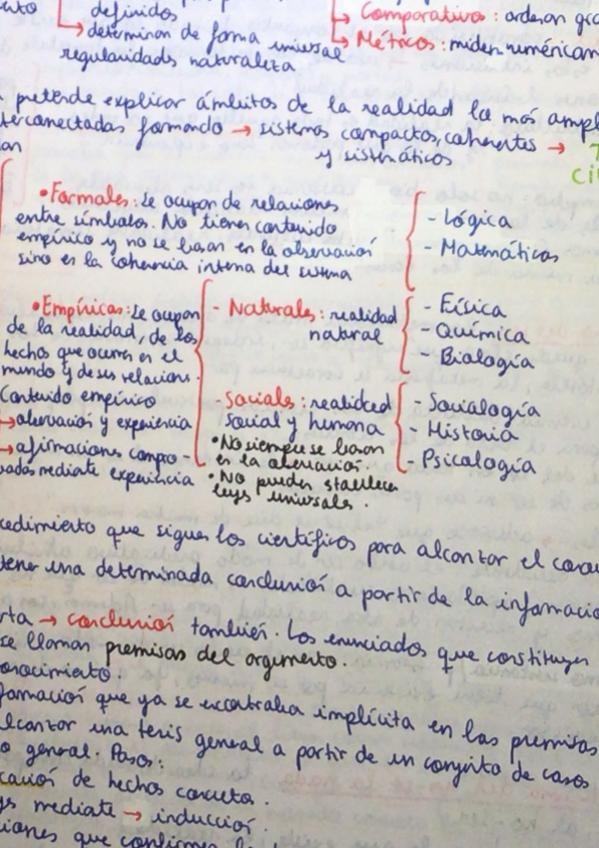 definidos
→ Comparativos: ordenan gra
→ determinan de forma universal
→ Métricos: miden numéricam
regularidads naturaleza
pretende explicar ámbitos de la realidad lo más ampl
terconectadas formando → sistemas compactos, coherentes →
y sistemáticos
• Formales: se ocupan de relaciones
entre símbolos. No tienen contenido
empírico y no se basan en la observación
sino en la coherencia interna del sistema
- Lógica
- Matemáticas
• Empíricas: se ocupan
de la realidad, de los
hechos que ocurren en el
mundo y de sus relacions.
Contenido empírico
→ observación y experiencia
→ afirmaciones compro-
vadas mediante experiencia
- Naturales: realidad
natural
- Física
- Química
- Biología
- Sociales: realidad
social y humana
• No siempre se basan
en la observación.
• No pueden establecer
leyes universales.
- Sociología
- Historia
- Psicología
cedimiento que siguen los científicos para alcanzar el conoc
tener una determinada conclusión a partir de la informació
rta → conclusión también. Los enunciados que constituyen
se llaman premisas del argumento.
onocimiento.
formación que ya se encontraba implícita en las premisas
lcanzar una tesis general a partir de un conjunto de casos
o general. Pasos:
cación de hechos concretos.
mediate → inducción.
iones que confirmen